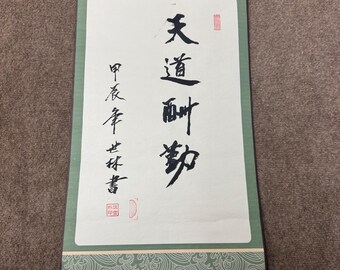 天道酬勤
甲辰年世林書